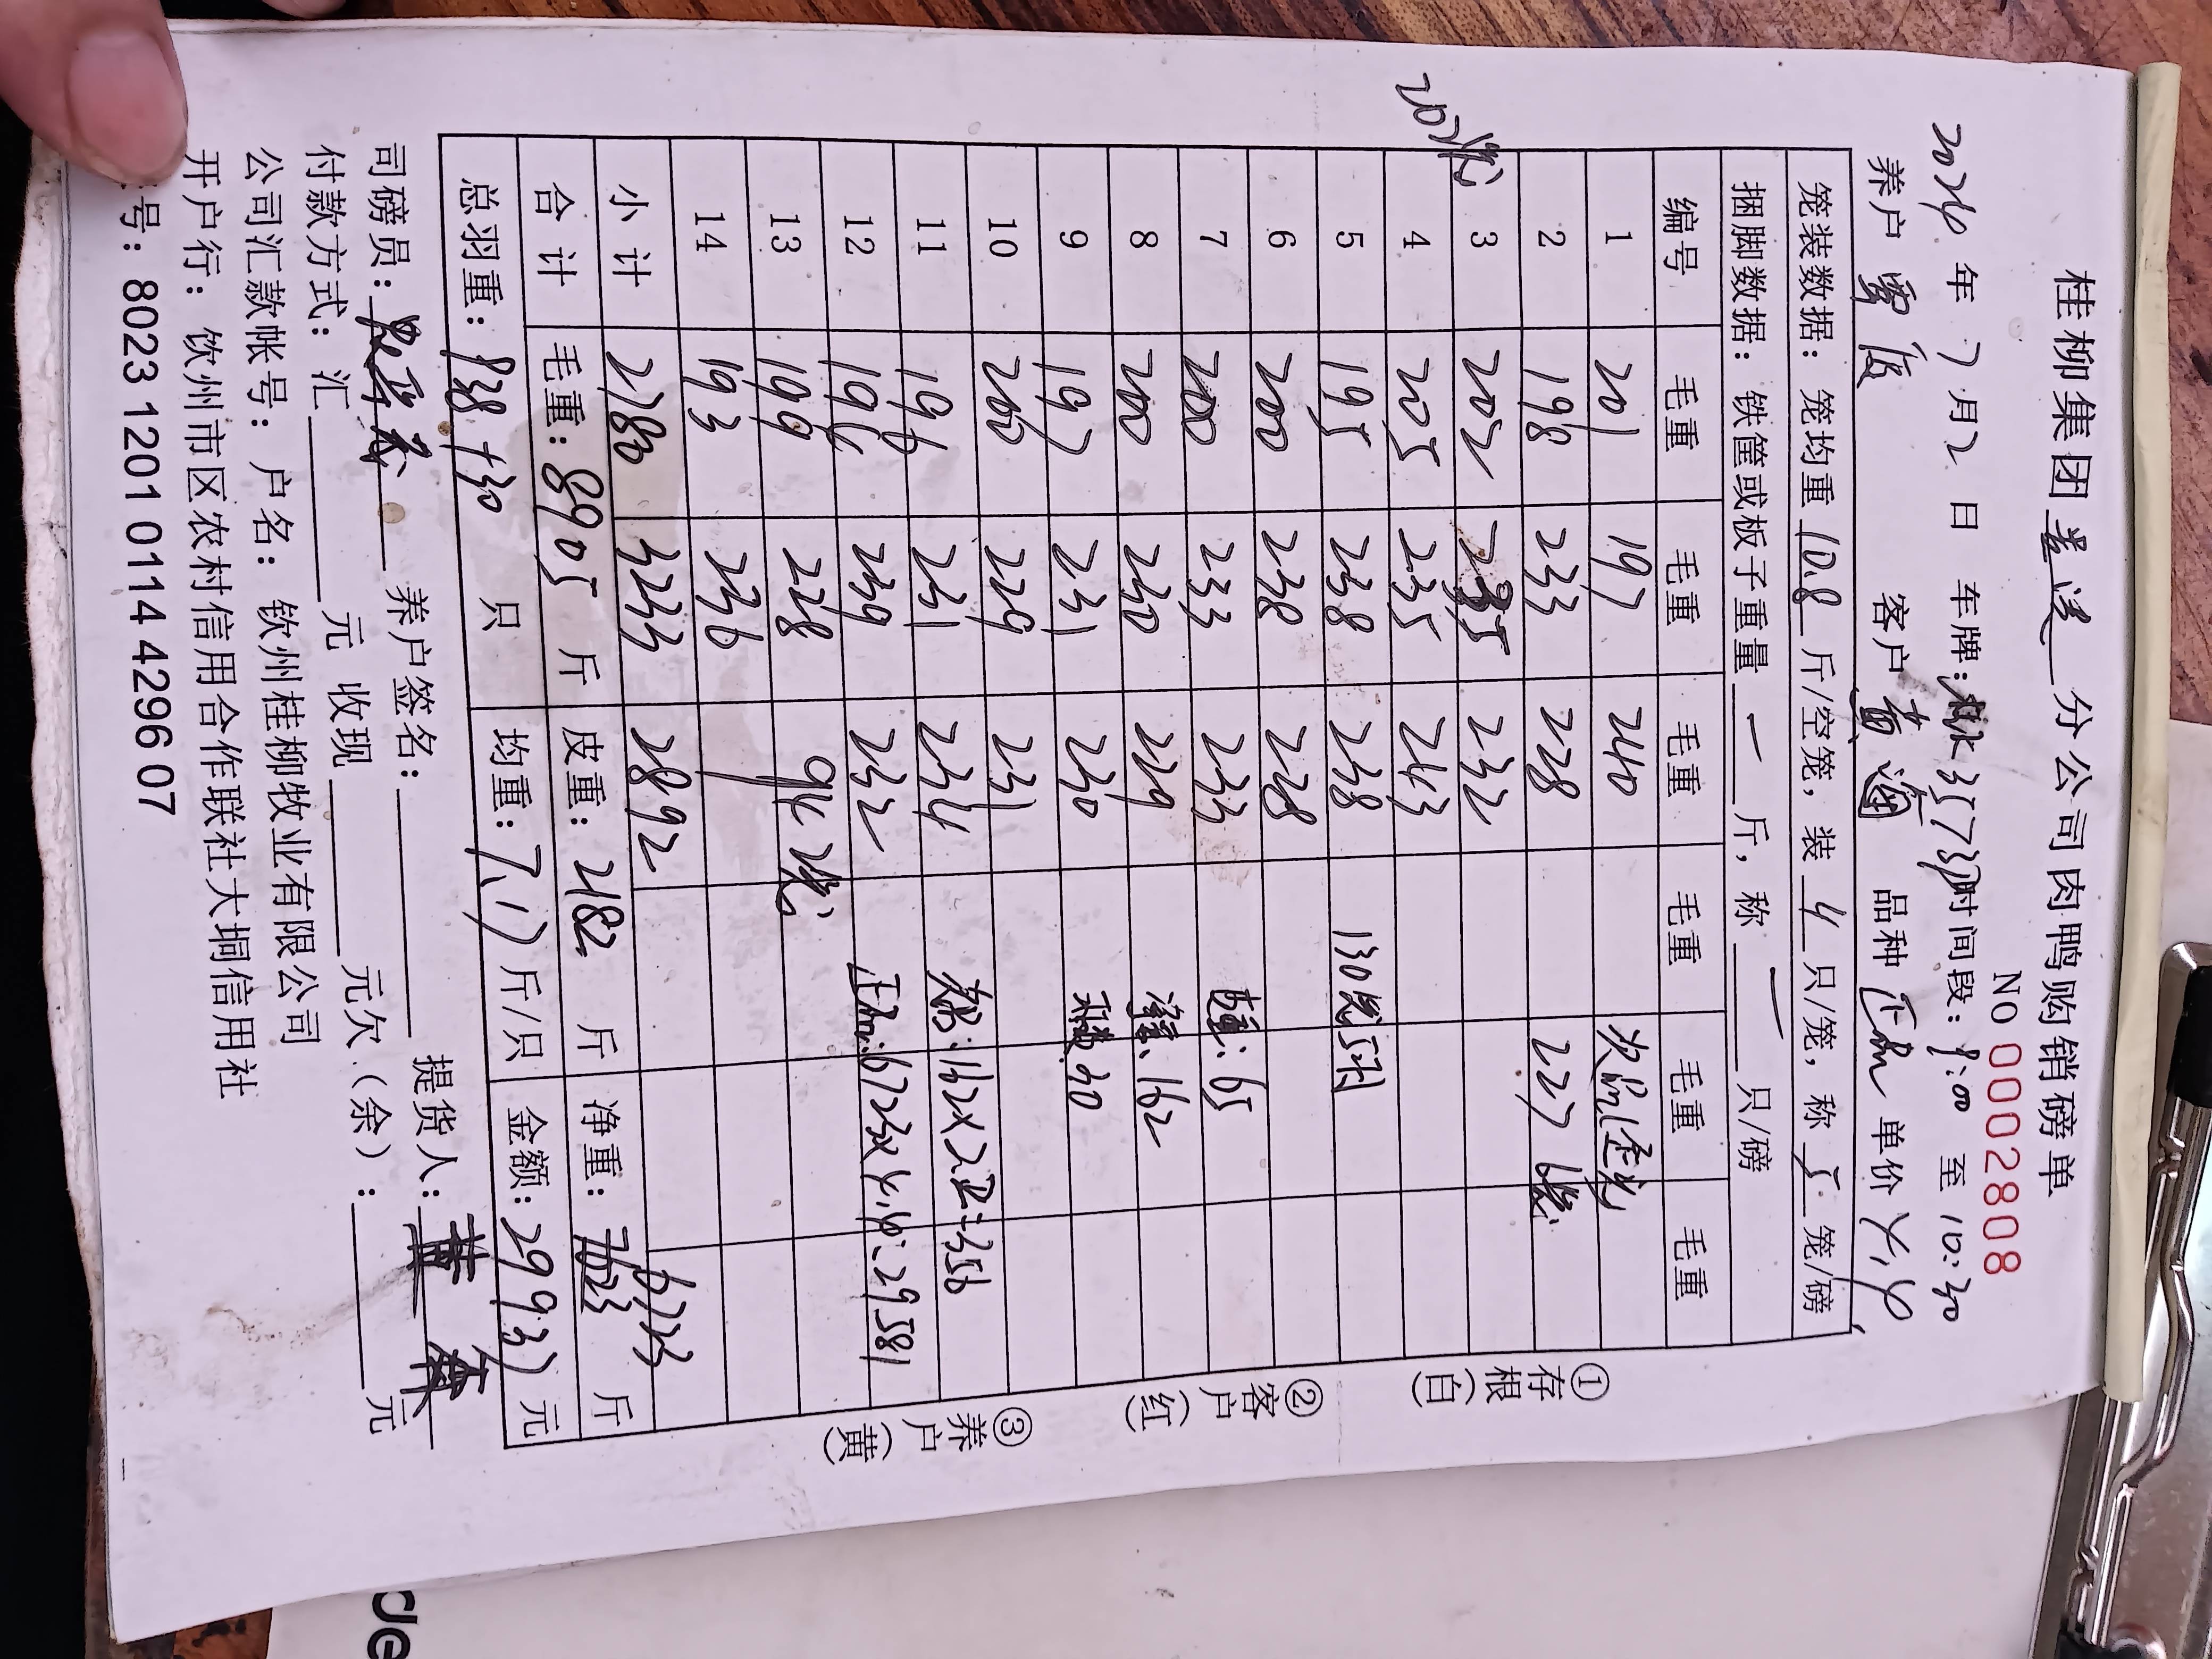 桂柳集团 分公司肉鸭购销磅单
NO 0002808
2024年7月2日 车牌: 35773 时间段: 9:00 至 10:30
养户 客户 黄海 品种 正品 单价 4.4
笼装数据: 笼均重 10.8 斤/空笼, 装 4 只/笼, 称 5 笼/磅
捆脚数据: 铁筐或板子重量 — 斤, 称 — 只/磅
编号 毛重 毛重 毛重 毛重 毛重 毛重
1 201 197 240 次品
2 198 233 228 227
3 202 235 232
4 205 235 243
5 195 238 238 130
6 200 238 228
7 200 233 233 65
8 200 230 229 净重: 162
9 197 231 230 30
10 200 229 231
11 196 231 234 162×2.2=356
12 196 239 232 正品: 6723×4.4=29581
13 199 228
14 193 236
小计 2780 3233 2892 6723
合计 毛重: 8905 斤 皮重: 2182 斤 净重: 斤
总羽重: 938+30 只 均重: 7.17 斤/只 金额: 29937 元
司磅员: 养户签名: 提货人: 黄海
付款方式: 汇 元 收现 元欠(余): 元
公司汇款帐号: 户名: 钦州桂柳牧业有限公司
开户行: 钦州市区农村信用合作联社大垌信用社
号: 8023 1201 0114 4296 07
①存根(白)
②客户(红)
③养户(黄)
de